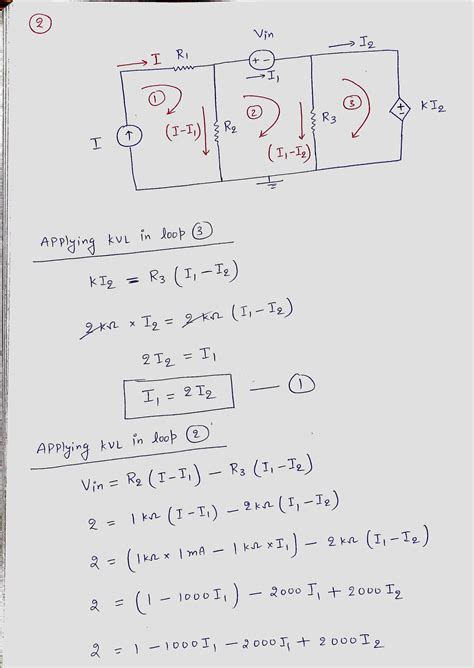 ②
Vin
→ I R₁ → I₂
+ -
→ I₁
① ② ③
I ↑ (I-I₁) R₂ R₃ + - KI₂
(I₁-I₂)
Applying KVL in loop ③
KI₂ = R₃ (I₁-I₂)
2kΩ × I₂ = 2kΩ (I₁-I₂)
2I₂ = I₁
I₁ = 2I₂ — ①
Applying KVL in loop ②
Vin = R₂ (I-I₁) - R₃ (I₁-I₂)
2 = 1kΩ (I-I₁) - 2kΩ (I₁-I₂)
2 = (1kΩ × 1mA - 1kΩ × I₁) - 2kΩ (I₁-I₂)
2 = (1 - 1000I₁) - 2000I₁ + 2000I₂
2 = 1 - 1000I₁ - 2000I₁ + 2000I₂